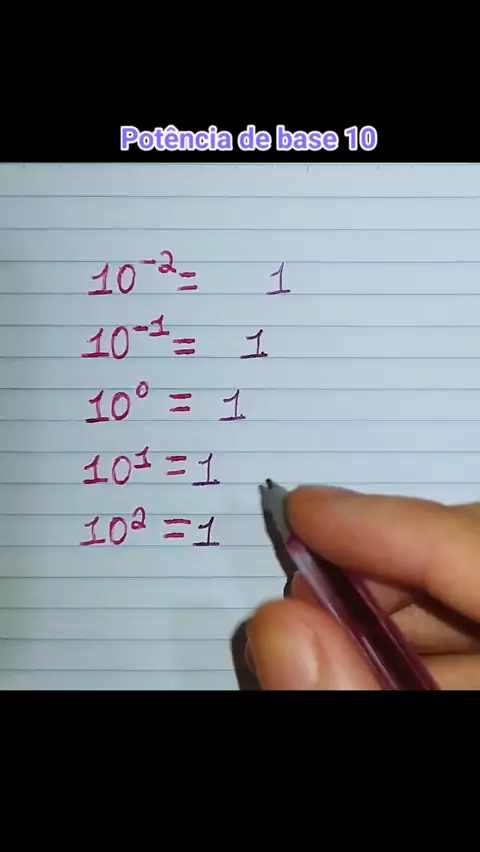 Potência de base 10
10⁻²= 1
10⁻¹= 1
10⁰ = 1
10¹ =1
10² =1